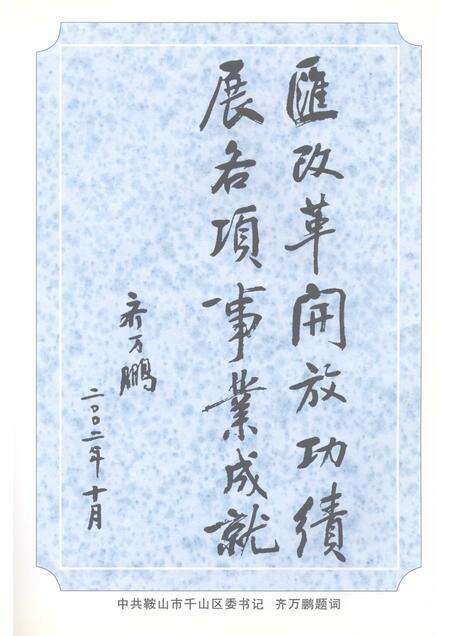 匯改革開放功績
展各項事業成就
齐万鹏
二〇〇二年十月
中共鞍山市千山区委书记 齐万鹏题词